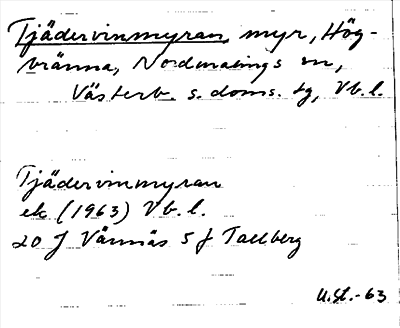 Tjädervinmyran, myr, Hög-
bränna, Nordmalings sn,
Västerb. s. doms. tg, Vb. l.
Tjädervinmyran
ek (1963) Vb. l.
20 J Vännäs 5 f Tallberg
U.Sl.-63